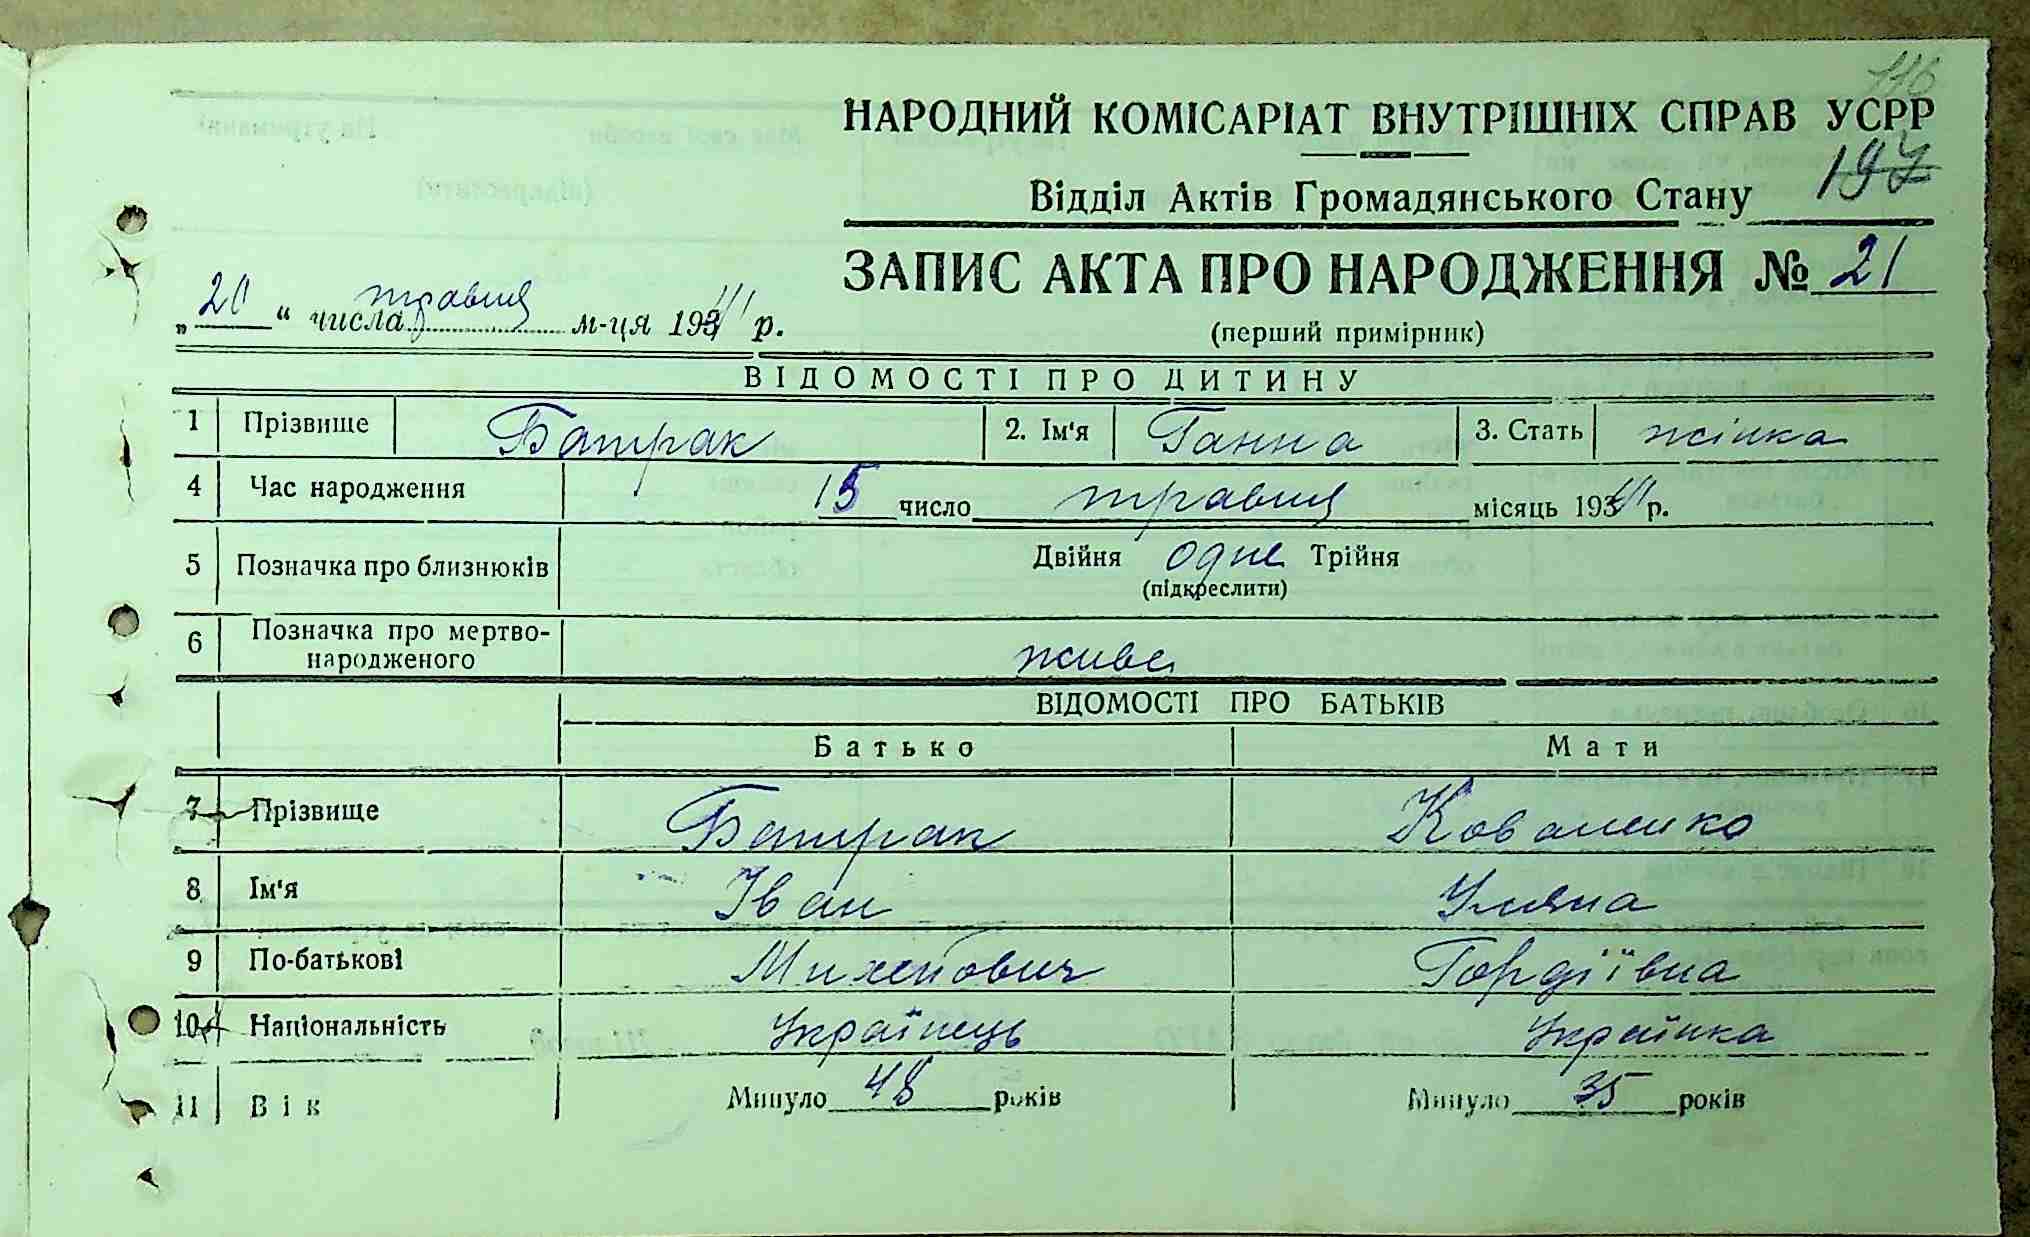 116
НАРОДНИЙ КОМІСАРІАТ ВНУТРІШНІХ СПРАВ УСРР
197
Відділ Актів Громадянського Стану
ЗАПИС АКТА ПРО НАРОДЖЕННЯ № 21
„20“ числа травня м-ця 1941 р.
(перший примірник)
ВІДОМОСТІ ПРО ДИТИНУ
1 Прізвище Батрак 2. Ім'я Ганна 3. Стать жінка
4 Час народження 15 число травня місяць 1941 р.
5 Позначка про близнюків Двійня одне Трійня
(підкреслити)
6 Позначка про мертво-
народженого живе
ВІДОМОСТІ ПРО БАТЬКІВ
Батько Мати
7 Прізвище Батрак Коваленко
8 Ім'я Іван Уляна
9 По-батькові Михейович Гордіївна
10 Національність Українець Українка
11 Вік Минуло 48 років Минуло 35 років